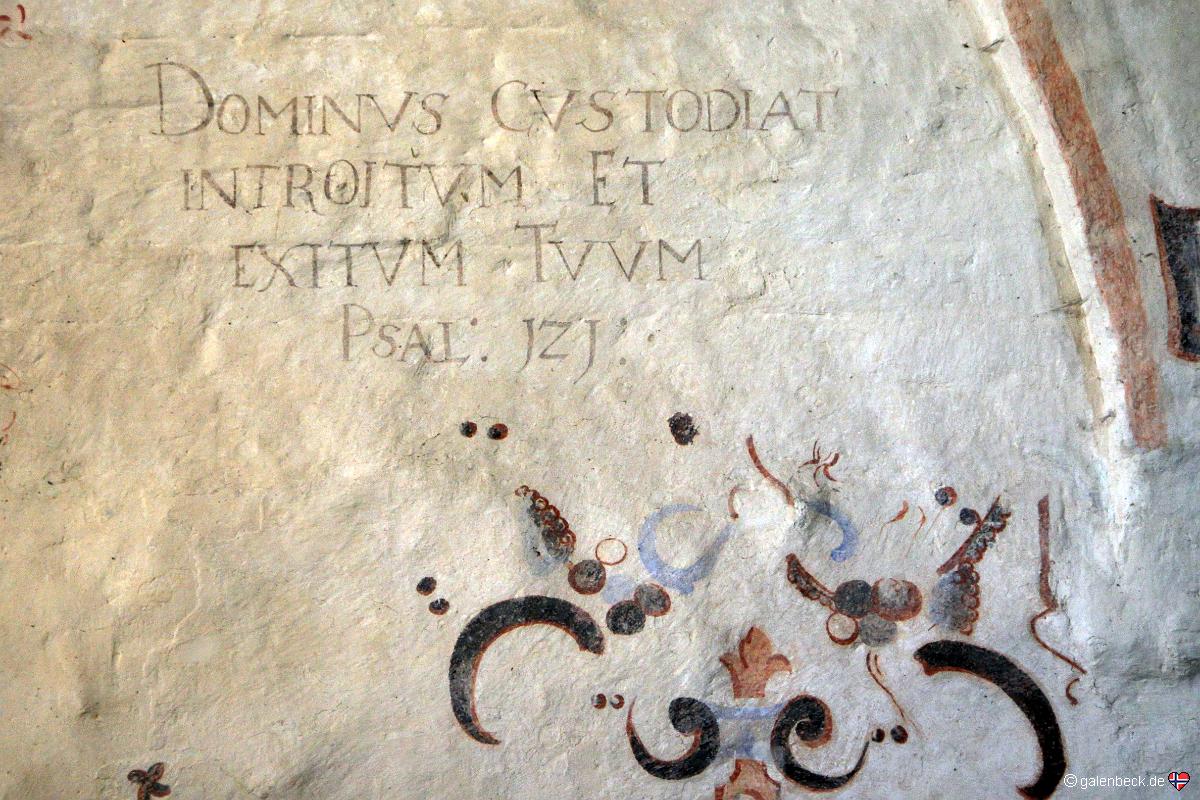 DOMINVS CVSTODIAT
INTROITVM ET
EXITVM TVVM
PSAL: JZJ:
© galenbeck.de